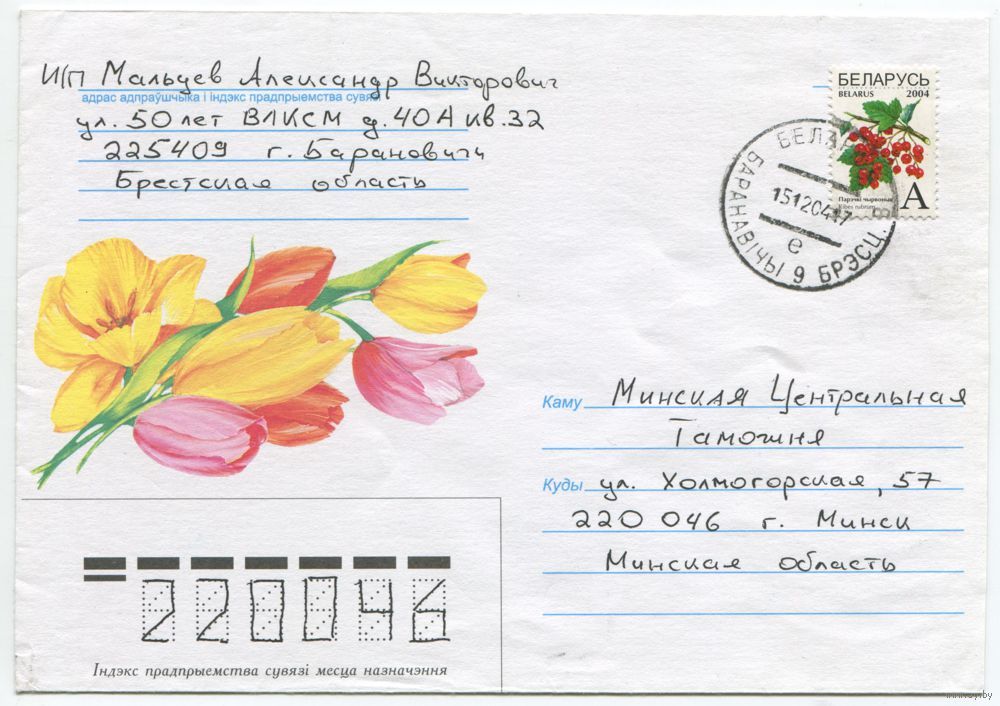 И/П Мальцев Александр Викторович
адрас адпраўшчыка і індэкс прадпрыемства сувязі
ул. 50 лет ВЛКСМ д. 40А кв. 32
225409 г. Барановичи
Брестская область
БЕЛАРУСЬ
BELARUS 2004
Парэчкі чырвоныя
Ribes rubrum
А
БАРАНАВІЧЫ 9 БРЭСЦ.
15120417
е
Каму Минская Центральная
Таможня
Куды ул. Холмогорская, 57
220 046 г. Минск
Минская область
220046
Індэкс прадпрыемства сувязі месца назначэння